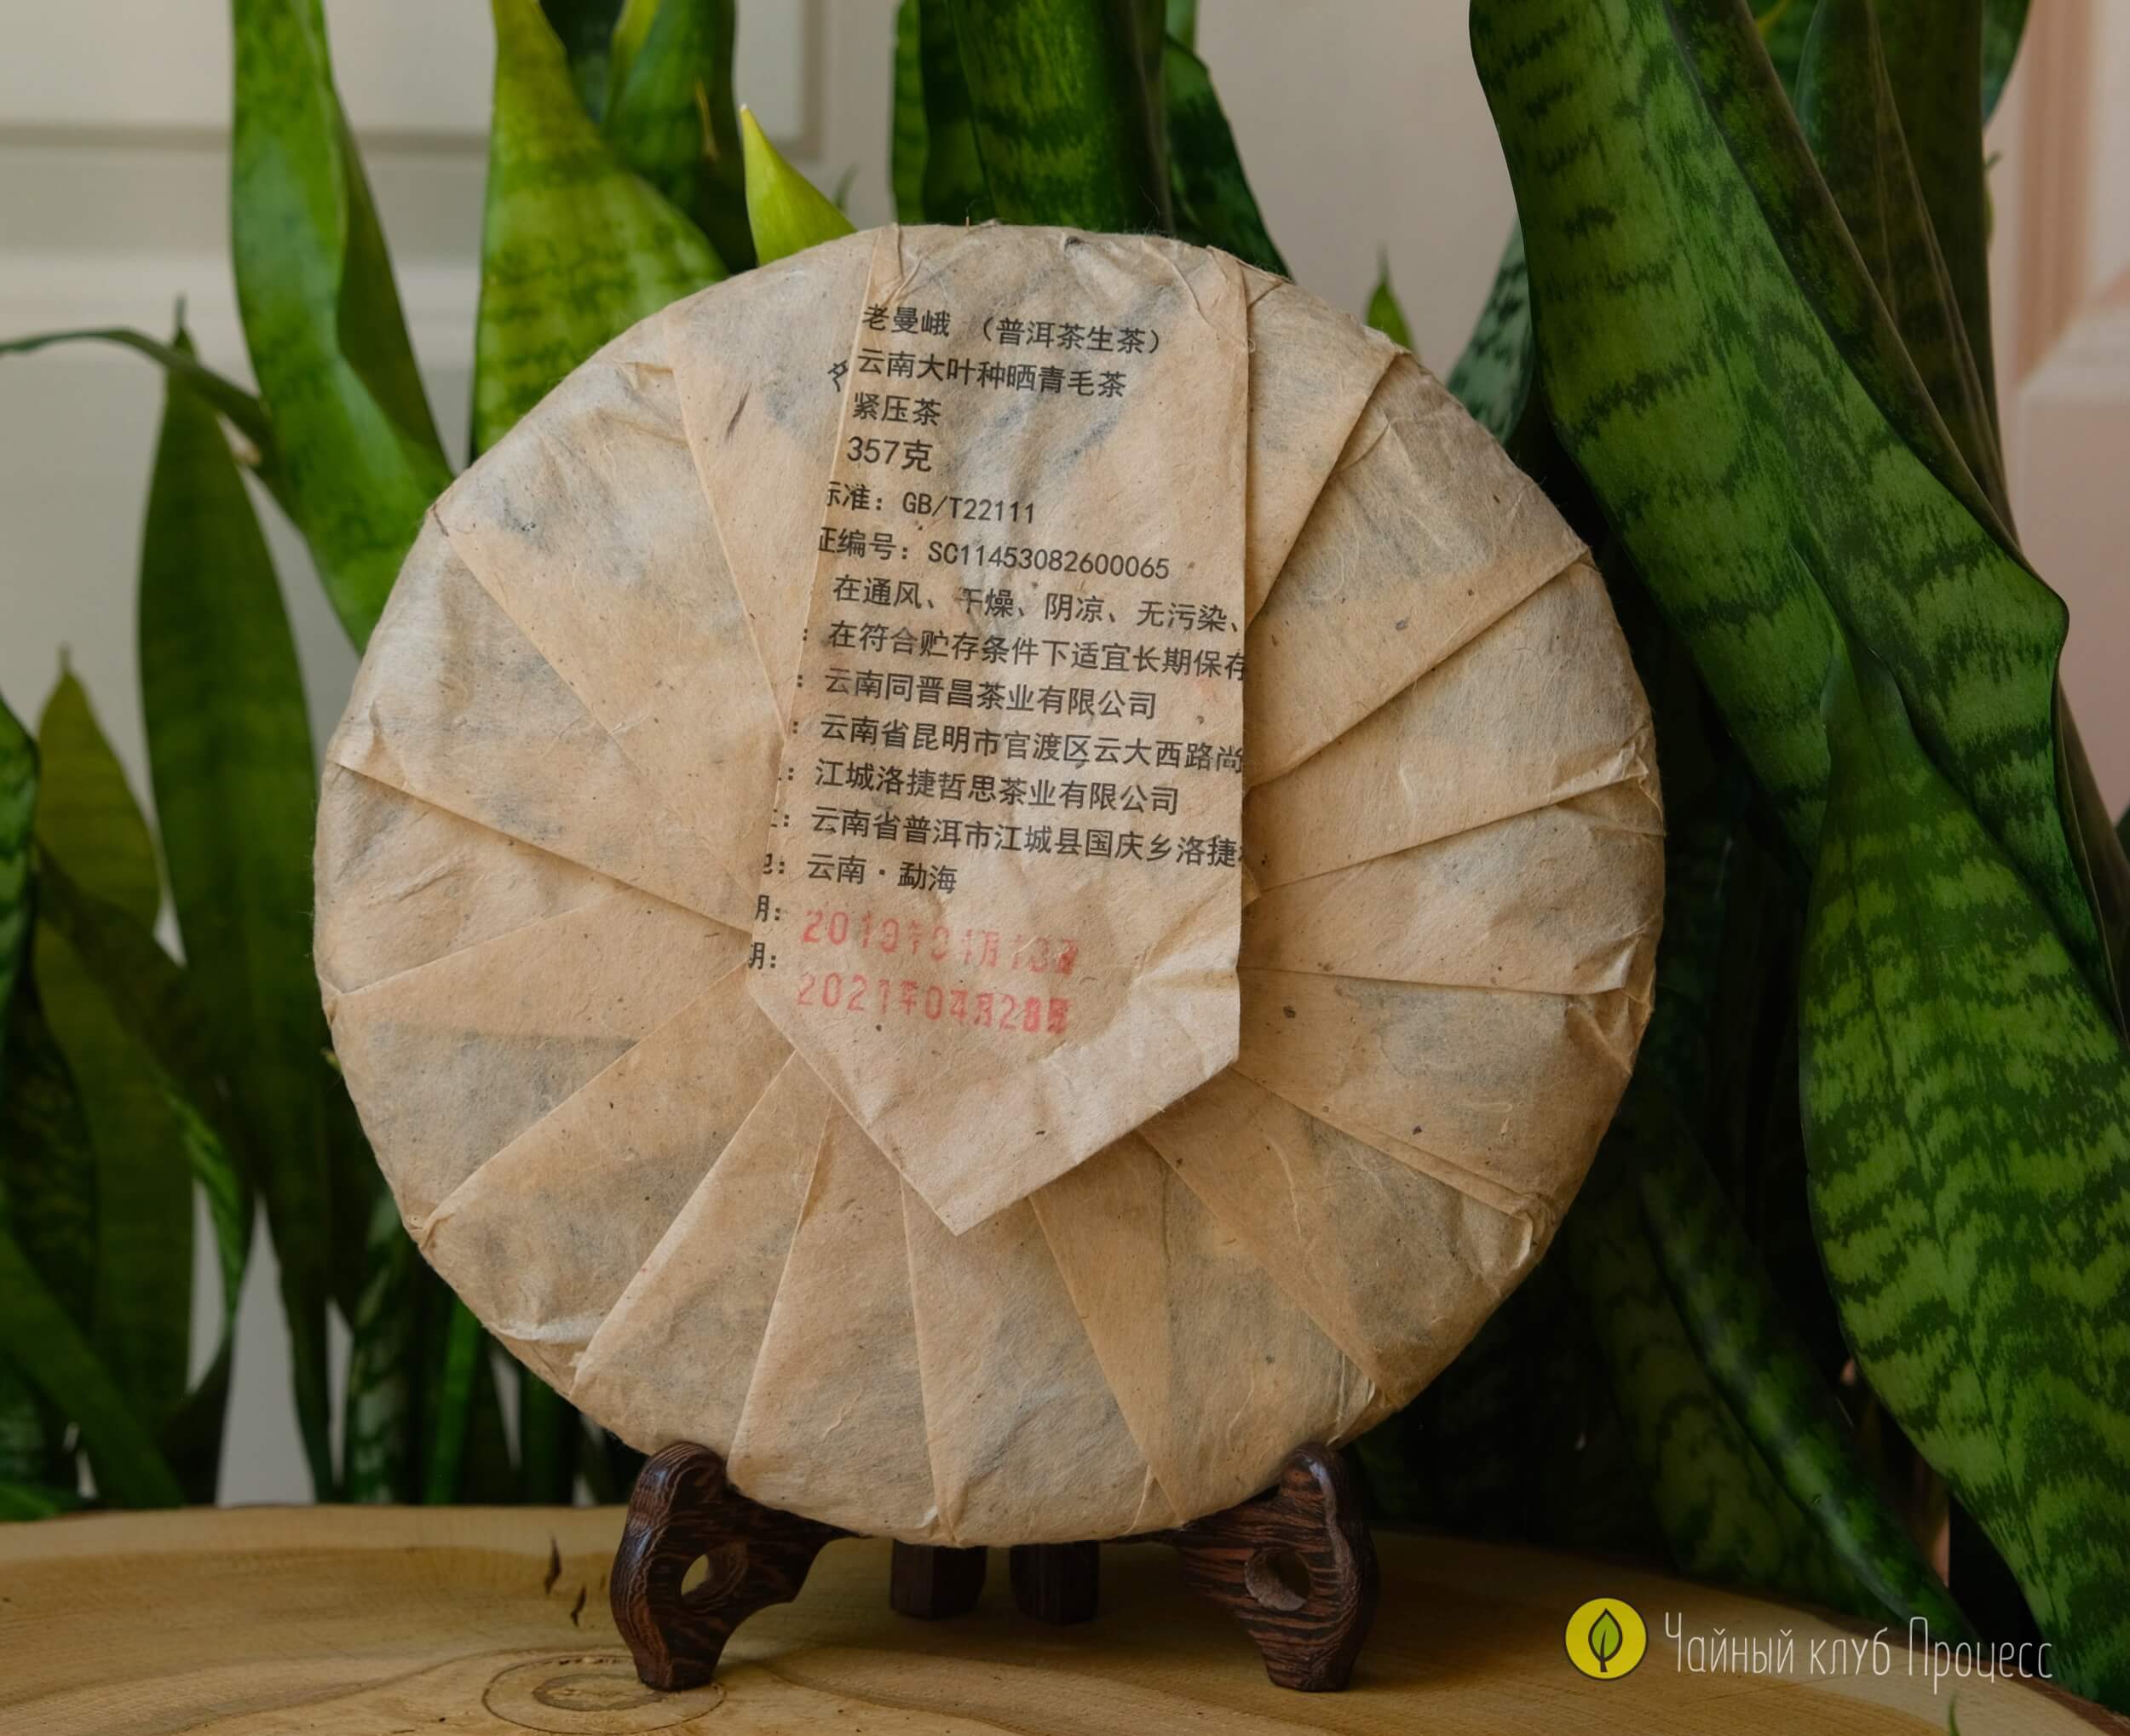 老曼峨 （普洱茶生茶）
云南大叶种晒青毛茶
紧压茶
357克
标准：GB/T22111
证编号：SC11453082600065
在通风、干燥、阴凉、无污染、
：在符合贮存条件下适宜长期保存
：云南同晋昌茶业有限公司
：云南省昆明市官渡区云大西路尚
：江城洛捷哲思茶业有限公司
：云南省普洱市江城县国庆乡洛捷
：云南·勐海
期：
期：2021年04月28日
Чайный клуб Процесс